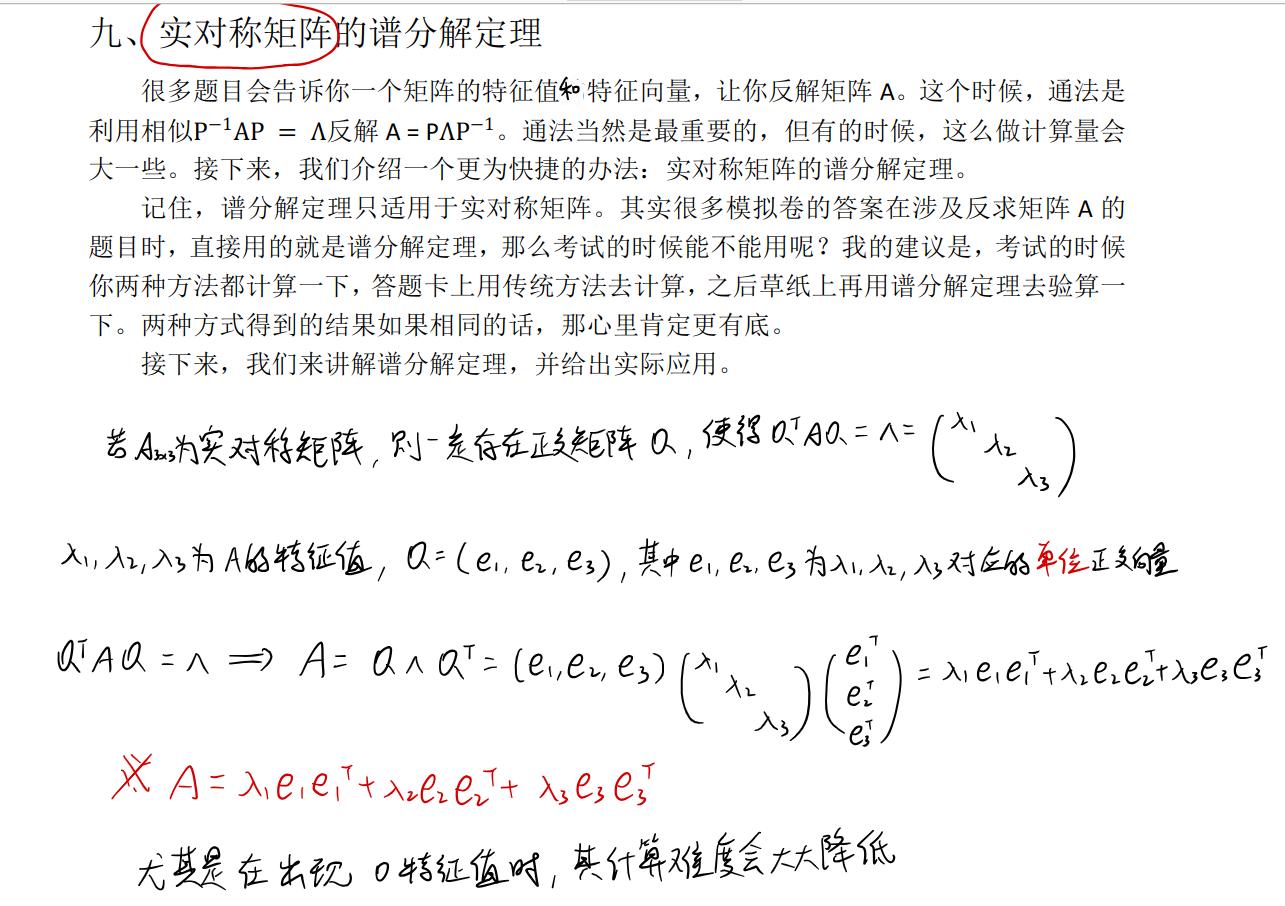 九、实对称矩阵的谱分解定理
很多题目会告诉你一个矩阵的特征值和特征向量，让你反解矩阵 A。这个时候，通法是
利用相似P⁻¹AP = Λ反解 A = PΛP⁻¹。通法当然是最重要的，但有的时候，这么做计算量会
大一些。接下来，我们介绍一个更为快捷的办法：实对称矩阵的谱分解定理。
记住，谱分解定理只适用于实对称矩阵。其实很多模拟卷的答案在涉及反求矩阵 A 的
题目时，直接用的就是谱分解定理，那么考试的时候能不能用呢？我的建议是，考试的时候
你两种方法都计算一下，答题卡上用传统方法去计算，之后草纸上再用谱分解定理去验算一
下。两种方式得到的结果如果相同的话，那心里肯定更有底。
接下来，我们来讲解谱分解定理，并给出实际应用。
若 A₃ₓ₃为实对称矩阵，则一定存在正交矩阵 Q，使得 QᵀAQ = Λ = (λ₁ λ₂ λ₃)
λ₁, λ₂, λ₃为 A的特征值，Q = (e₁, e₂, e₃)，其中 e₁, e₂, e₃ 为 λ₁, λ₂, λ₃ 对应的单位正交向量
QᵀAQ = Λ ⟹ A = QΛQᵀ = (e₁, e₂, e₃) (λ₁ λ₂ λ₃) (e₁ᵀ e₂ᵀ e₃ᵀ) = λ₁e₁e₁ᵀ + λ₂e₂e₂ᵀ + λ₃e₃e₃ᵀ
※ A = λ₁e₁e₁ᵀ + λ₂e₂e₂ᵀ + λ₃e₃e₃ᵀ
尤其是在出现 0特征值时，其计算难度会大大降低